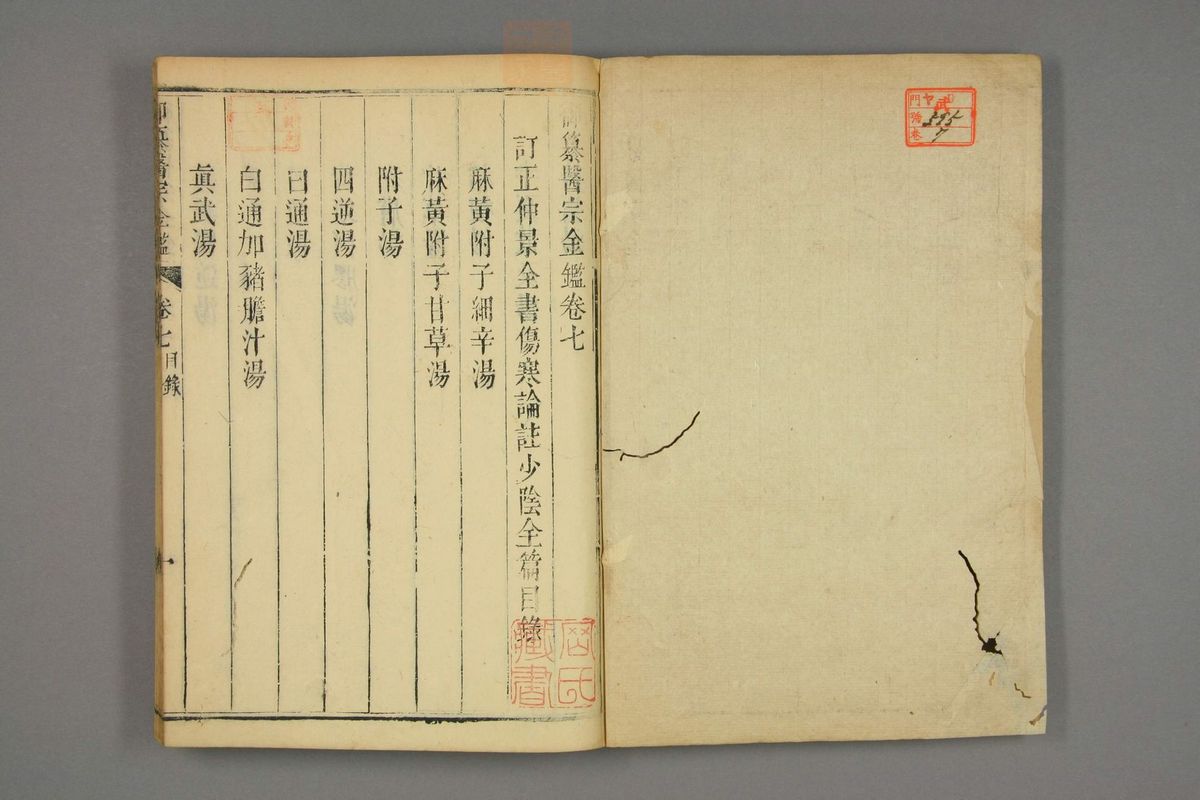 門 ヤ 武
號 395
卷 7
御纂醫宗金鑑卷七
訂正仲景全書傷寒論註少陰全篇目錄
麻黃附子細辛湯
麻黃附子甘草湯
附子湯
四逆湯
白通湯
白通加豬膽汁湯
眞武湯
御纂醫宗金鑑 卷七 目錄 一
藏書